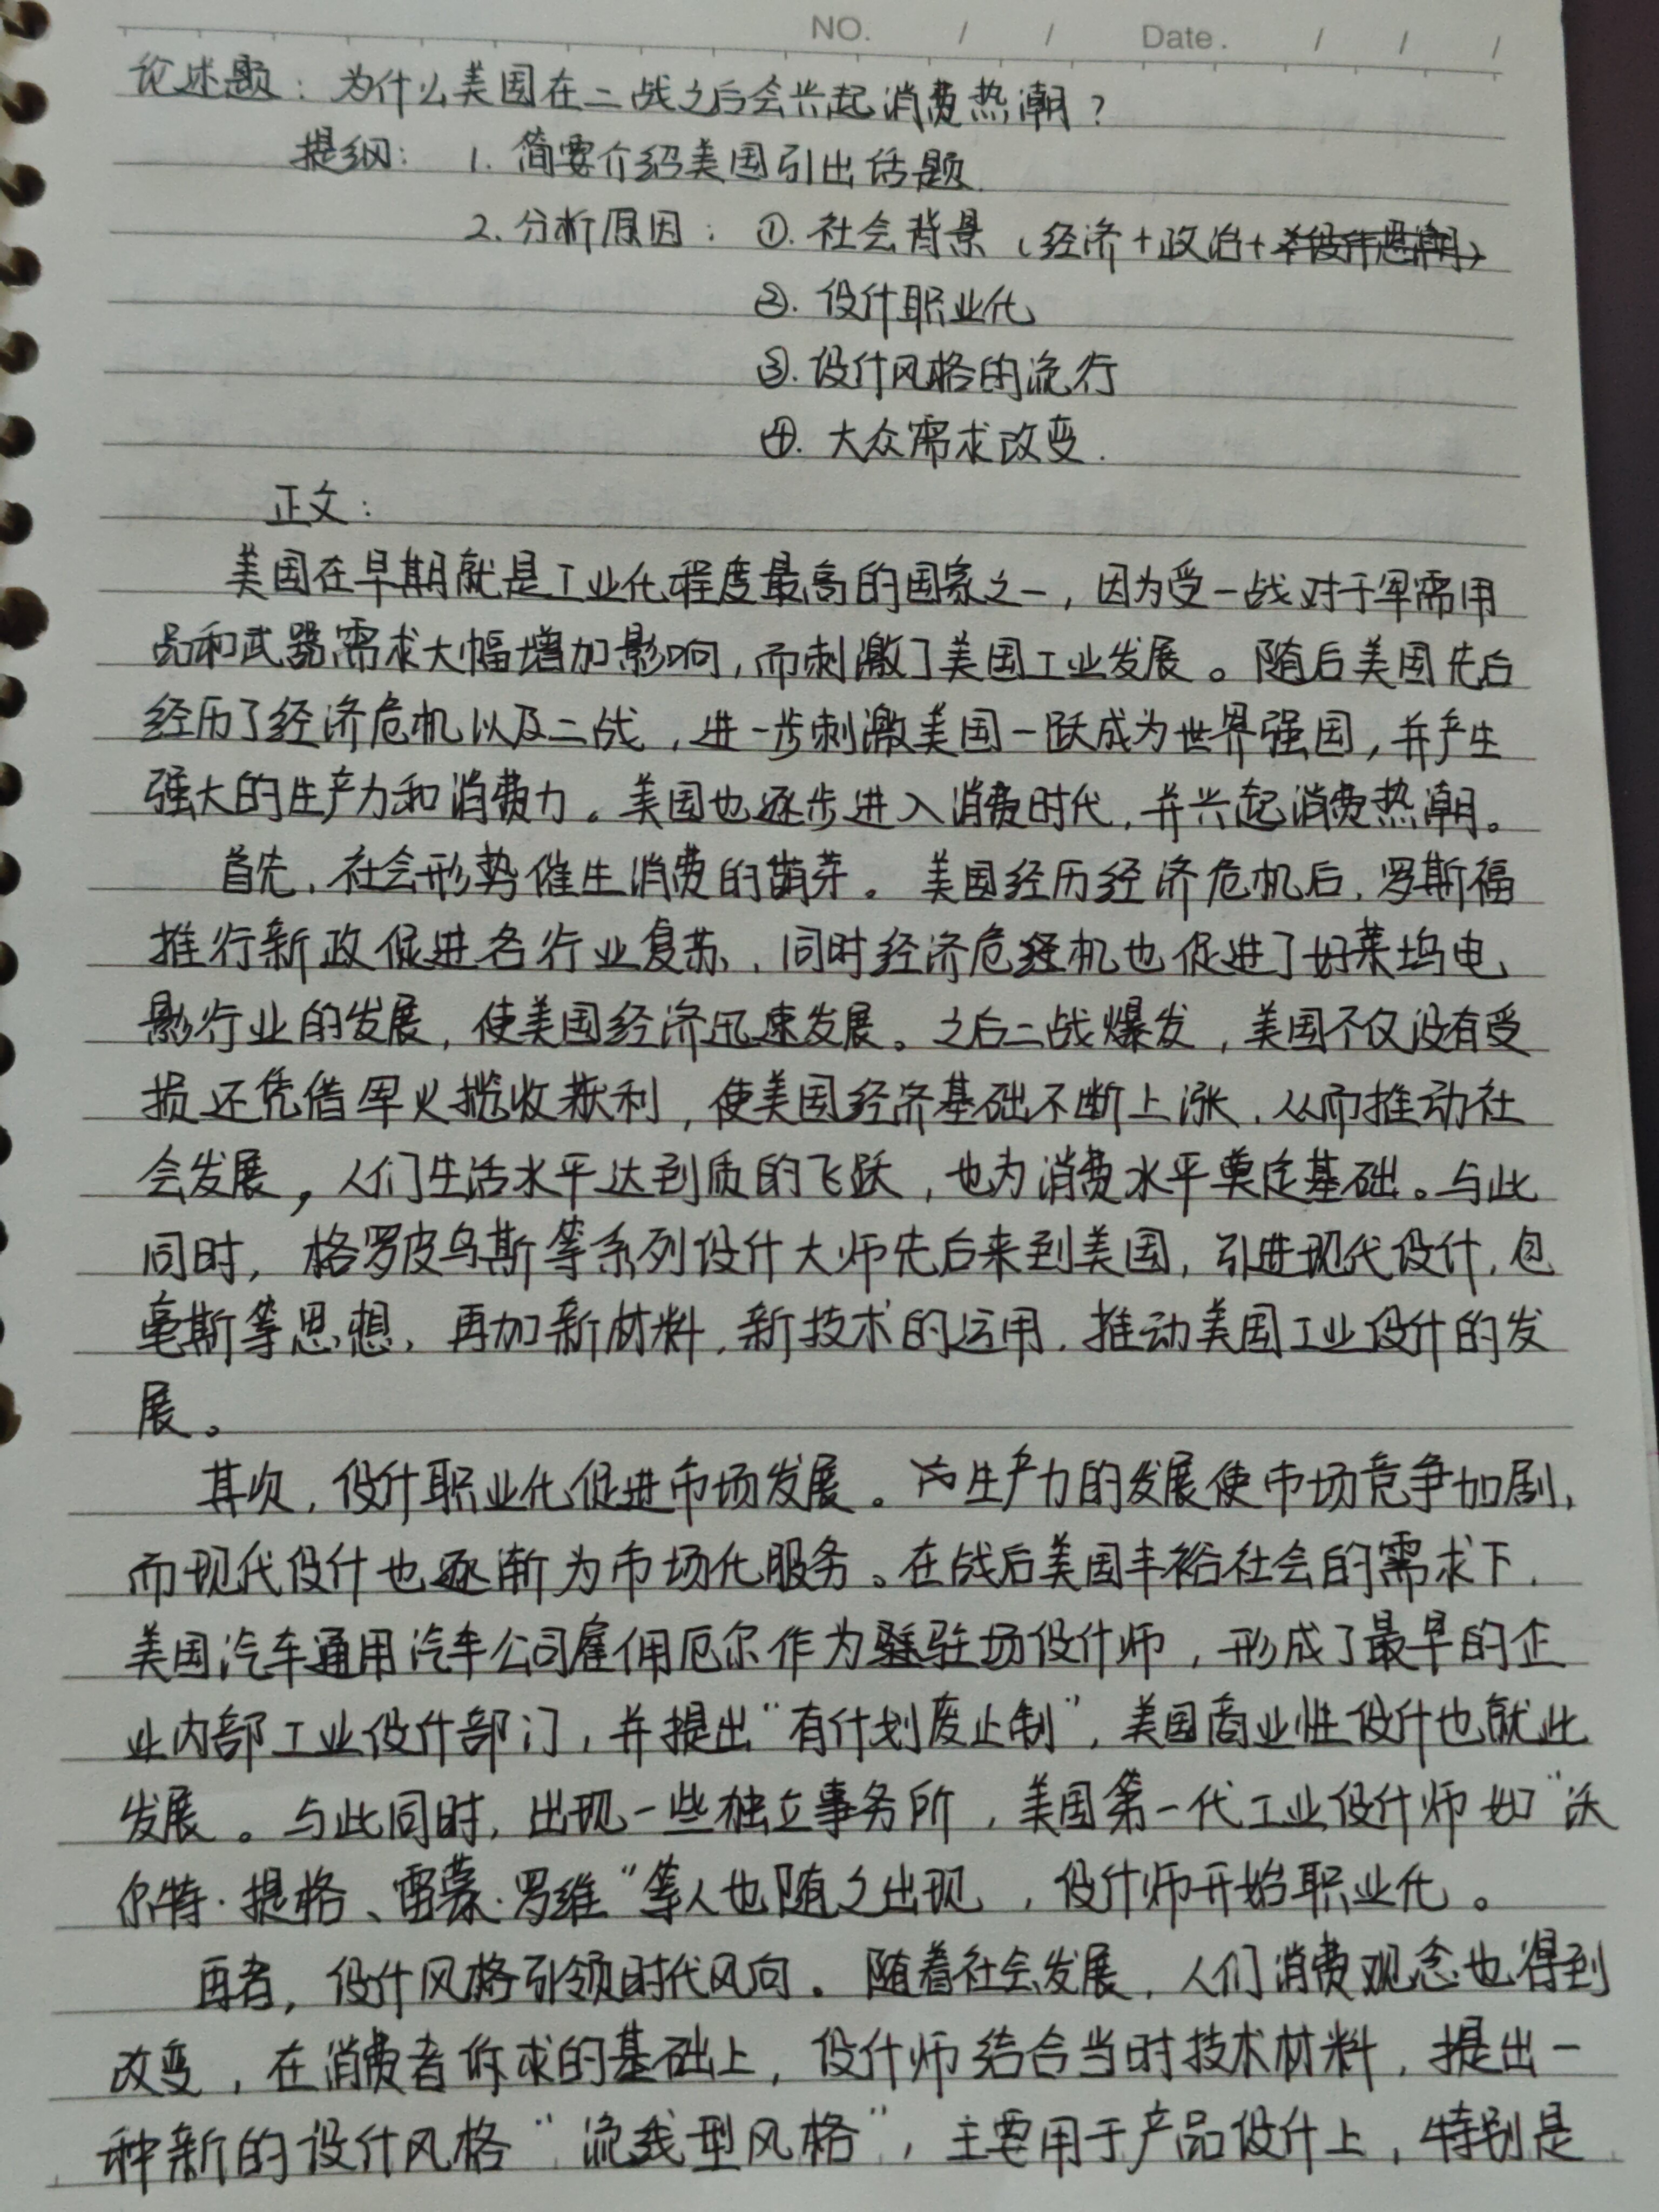 NO. / / Date. / / /
论述题：为什么美国在二战之后会兴起消费热潮？
提纲： 1. 简要介绍美国引出话题.
2. 分析原因：①. 社会背景（经济+政治+设计思潮）
②. 设计职业化
③. 设计风格的流行
④. 大众需求改变.
正文：
美国在早期就是工业化程度最高的国家之一，因为受一战对于军需用
品和武器需求大幅增加影响，而刺激了美国工业发展。随后美国先后
经历了经济危机以及二战，进一步刺激美国一跃成为世界强国，并产生
强大的生产力和消费力。美国也逐步进入消费时代，并兴起消费热潮。
首先，社会形势催生消费的萌芽。美国经历经济危机后，罗斯福
推行新政促进各行业复苏，同时经济危机也促进了好莱坞电
影行业的发展，使美国经济迅速发展。之后二战爆发，美国不仅没有受
损还凭借军火揽收获利，使美国经济基础不断上涨，从而推动社
会发展，人们生活水平达到质的飞跃，也为消费水平奠定基础。与此
同时，格罗皮乌斯等系列设计大师先后来到美国，引进现代设计，包
豪斯等思想，再加新材料，新技术的运用，推动美国工业设计的发
展。
其次，设计职业化促进市场发展。生产力的发展使市场竞争加剧，
而现代设计也逐渐为市场化服务。在战后美国丰裕社会的需求下，
美国汽车通用汽车公司雇佣厄尔作为驻场设计师，形成了最早的企
业内部工业设计部门，并提出“有计划废止制”，美国商业性设计也就此
发展。与此同时，出现一些独立事务所，美国第一代工业设计师如“沃
尔特·提格、雷蒙·罗维“等人也随之出现，设计师开始职业化。
再者，设计风格引领时代风向。随着社会发展，人们消费观念也得到
改变，在消费者诉求的基础上，设计师结合当时技术材料，提出一
种新的设计风格“流线型风格”，主要用于产品设计上，特别是